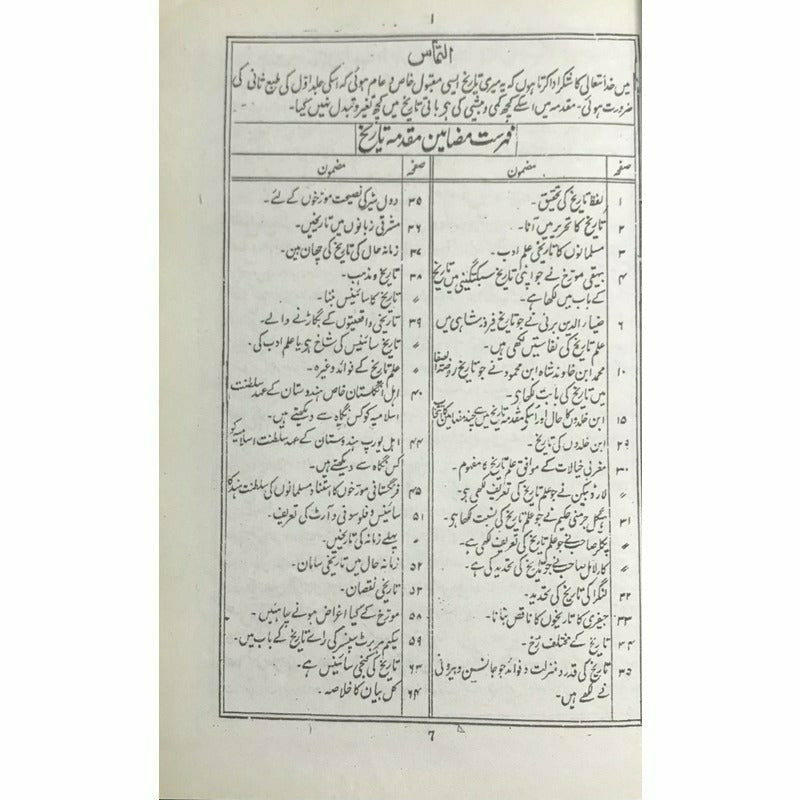 ۱
التماس
میں خدا تعالیٰ کا شکر ادا کرتا ہوں کہ یہ میری تاریخ ایسی مقبول خاص و عام ہوئی کہ اسکی جلد اول کی طبع ثانی کی
ضرورت ہوئی۔ مقدمہ میں اسکے کچھ کمی و بیشی کی ہی باقی تاریخ میں کچھ تغیر و تبدل نہیں کیا۔
فہرست مضامین مقدمہ تاریخ
صفحہ مضمون
۱ لفظ تاریخ کی تحقیق۔
۲ تاریخ کا تحریر میں آنا۔
۳ مسلمانوں کا تاریخی علم ادب۔
۴ بیہقی مورخ نے جو اپنی تاریخ سبکتگینی میں تاریخ
کے باب میں لکھا ہے۔
۶ ضیاء الدین برنی نے جو تاریخ فیروز شاہی میں
علم تاریخ کی نفاستیں لکھی ہیں۔
۱۰ محمد ابن خاوند شاہ ابن محمود نے جو تاریخ روضۃ الصفا
میں تاریخ کی بابت لکھا ہی۔
۱۵ ابن خلدوں کا حال اور اسکے مقدمہ تاریخ میں سے چند مضامین کا انتخاب
۲۹ ابن خلدوں کی تاریخ۔
۳۰ مغربی خیالات کے موافق علم تاریخ کا مفہوم۔
〃 لارڈ بیکن نے جو علم تاریخ کی تعریف لکھی ہی۔
۳۱ ہیگل جرمنی حکیم نے جو علم تاریخ کی نسبت لکھا ہی۔
〃 بکل صاحب نے جو علم تاریخ کی تعریف لکھی ہے۔
〃 کارلائل صاحب نے جو تاریخ کی تحدید کی ہے۔
۳۲ کنگز کی تاریخ کی تحدید۔
۳۳ جیفری کا تاریخوں کا ناقص بتانا۔
۳۴ تاریخ کے مختلف رخ۔
۳۵ تاریخ کی قدر و منزلت و فوائد جو جانسین و ہیرونی
نے لکھے ہیں۔
صفحہ مضمون
۳۵ دول شیر کی نصیحت مورخوں کے لئے۔
۳۶ مشرقی زبانوں میں تاریخیں۔
۳۷ زمانہ حال کی تاریخ کی چھان بین۔
۳۸ تاریخ و مذہب۔
〃 تاریخ کا سائینس بننا۔
۳۹ تاریخی واقعیتوں کے بگاڑنے والے۔
〃 تاریخ سائینس کی شاخ ہی یا علم ادب کی۔
〃 علم تاریخ کے فوائد وغیرہ۔
۴۰ اہل انگلستان خاص ہندوستان کے عہد سلطنت
اسلامیہ کو کس نگاہ سے دیکھتے ہیں۔
۴۴ اہل یورپ ہندوستان کے عہد سلطنت اسلامیہ کو
کس نگاہ سے دیکھتے ہیں۔
۴۵ فرنگستانی مورخوں کا اعتقاد مسلمانوں کی سلطنت ہند کا
۵۱ سائینس و فلوسوفی و آرٹ کی تعریف۔
〃 پہلے زمانہ کی تاریخیں۔
۵۲ زمانہ حال میں تاریخی سامان۔
۵۳ تاریخی نقصان۔
۵۸ مورخ کے کیا اغراض ہونے چاہئیں۔
۵۹ حکیم ہربرٹ سپنسر کی رائے تاریخ کے باب میں۔
۶۳ تاریخ کی کنجی سائینس ہے۔
۶۴ کل بیان کا خلاصہ۔
7